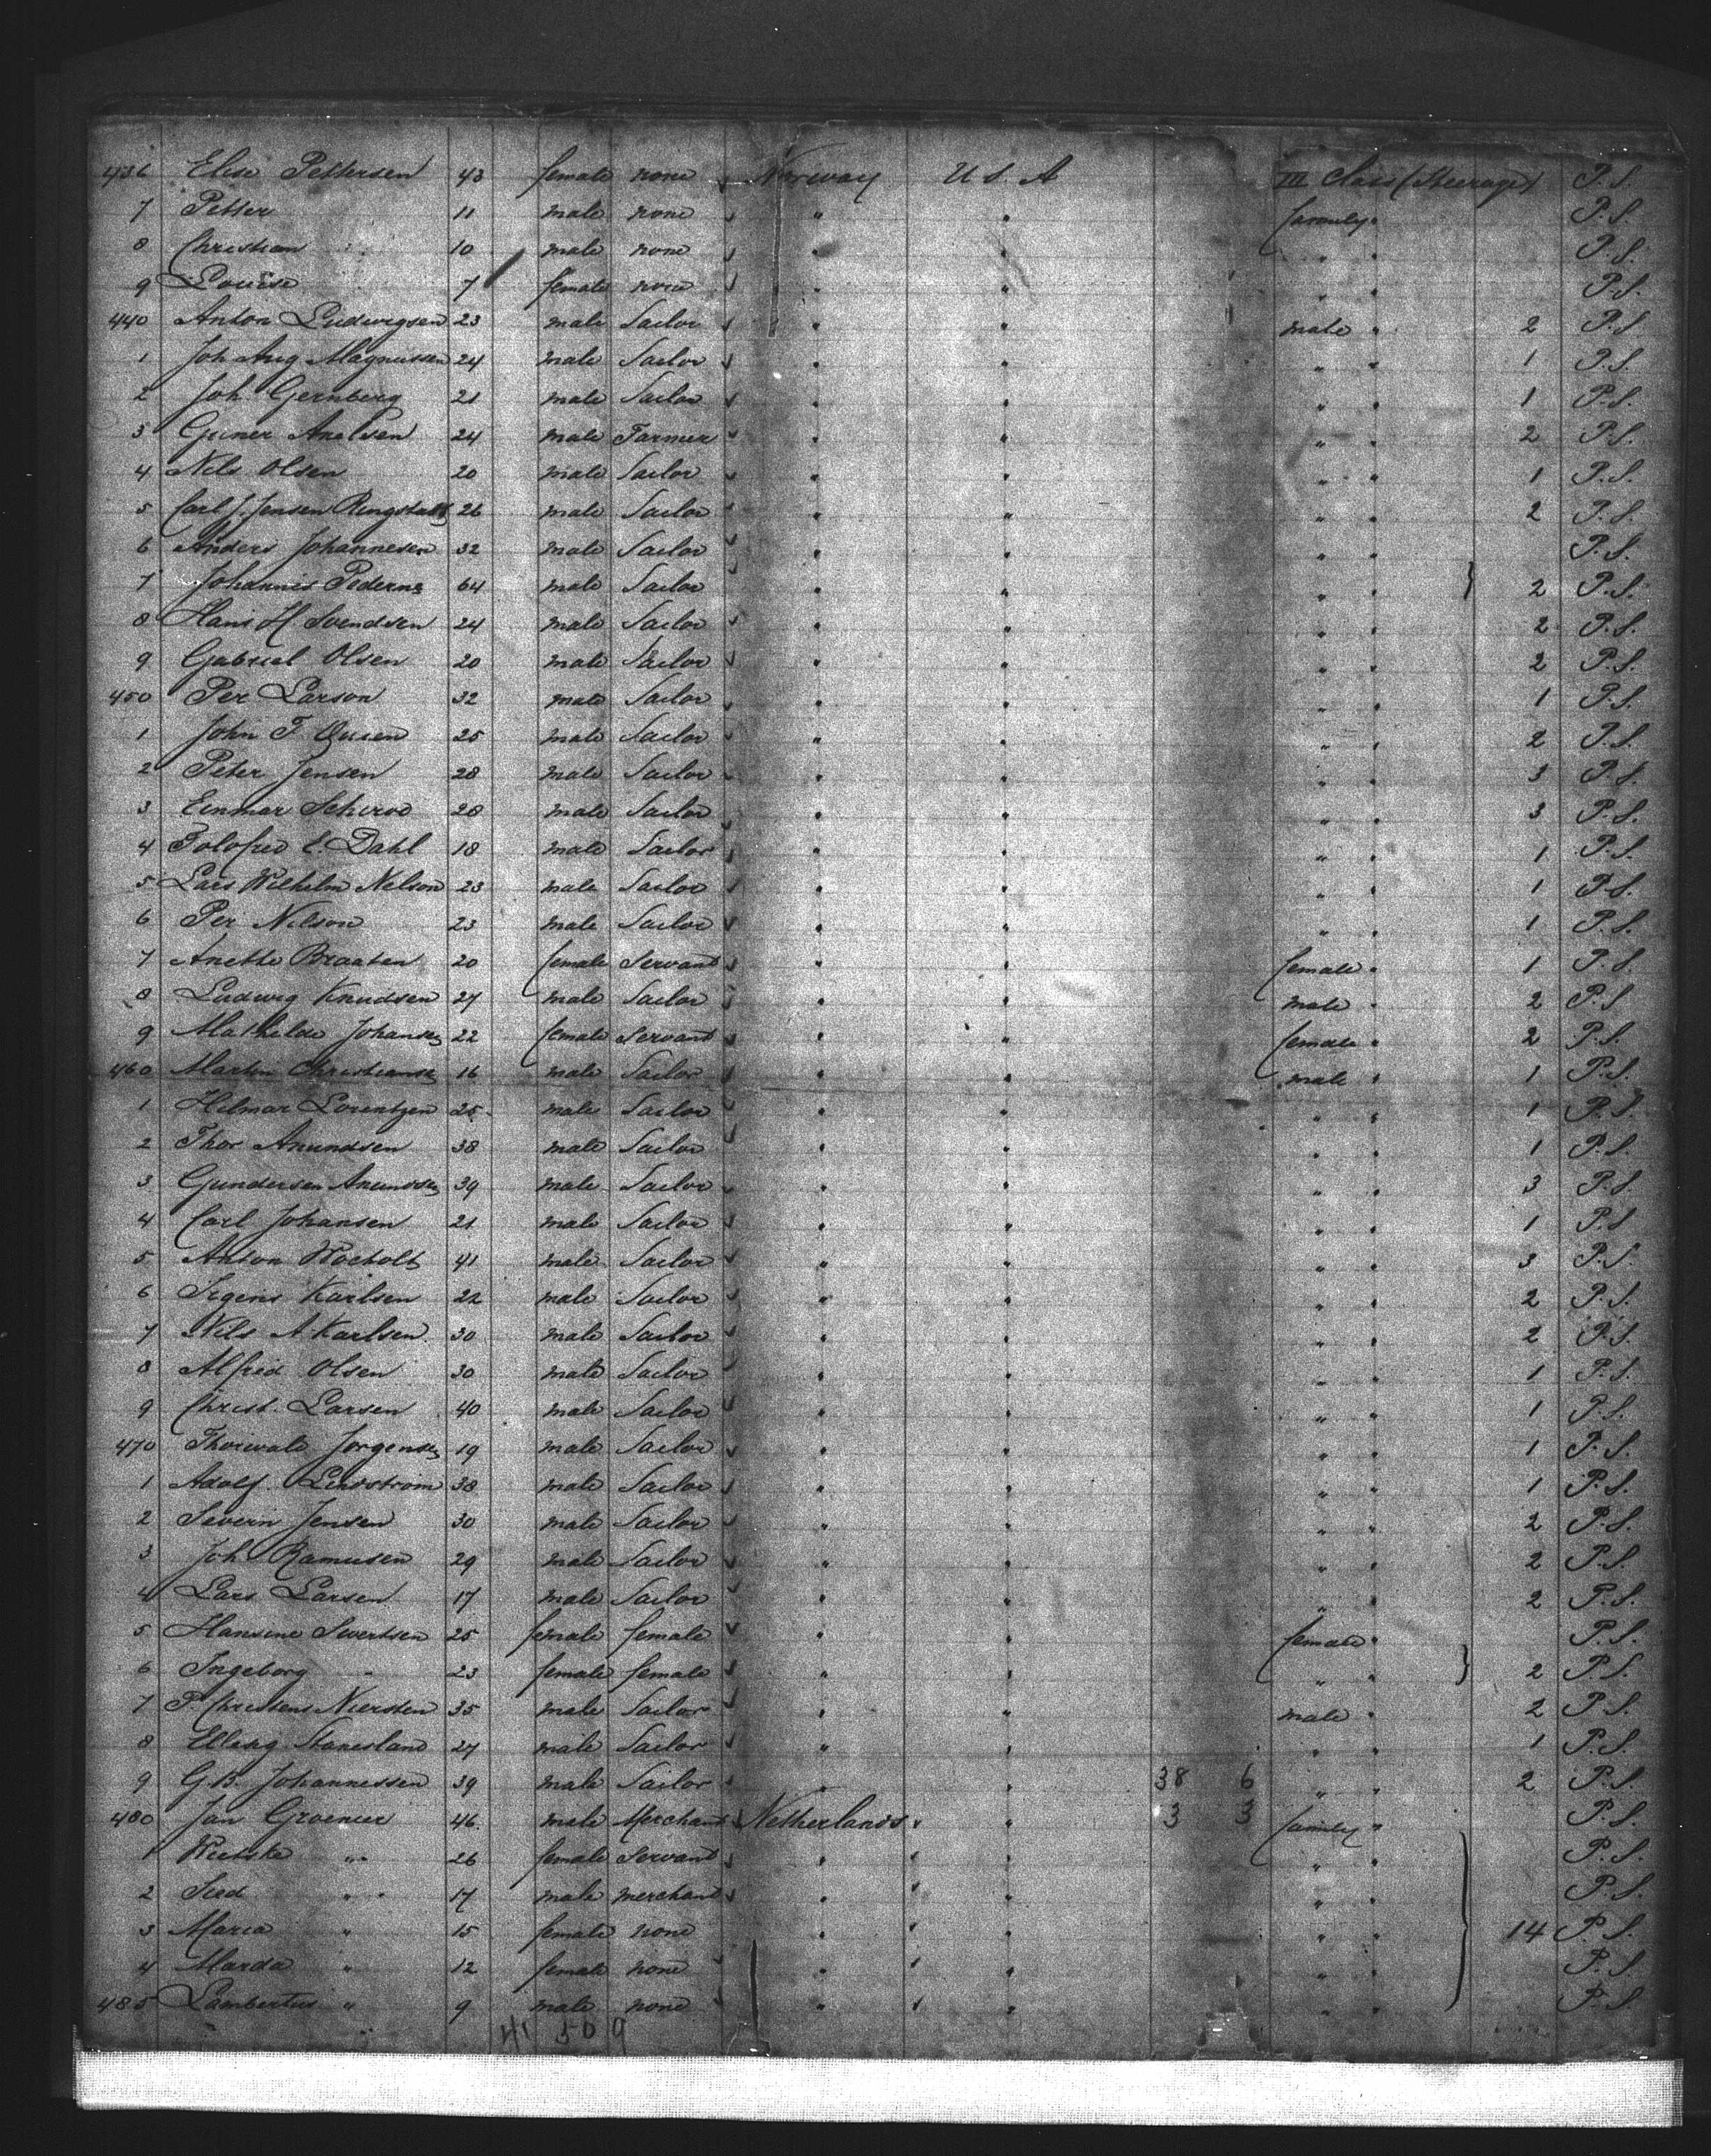 436 Elise Pettersen 43 female none Norway U S. A III Class (Steerage) P.S.
7 Petter 11 male none " " family " P.S.
8 Christian " 10 male none " " " " P.S.
9 Louise 7 female none " " " " P.S.
440 Anton Ludwigsen 23 male Sailor " " male " 2 P.S.
1 Joh Aug Magnussen 24 male Sailor " " " " 1 P.S.
2 Joh. Gernberg 21 male Sailor " " " " 1 P.S.
3 Guner Axelsen 24 male Farmer " " " " 2 P.S.
4 Nils Olsen 20 male Sailor " " " " 1 P.S.
5 Carl J. Jensen 26 male Sailor " " " " 2 P.S.
6 Anders Johannesen 32 male Sailor " " " " P.S.
7 Johannes 64 male Sailor " " " " } 2 P.S.
8 Hans H Svendsen 24 male Sailor " " " " 2 P.S.
9 Gabriel Olsen 20 male Sailor " " " " 2 P.S.
450 Per Larson 32 male Sailor " " " " 1 P.S.
1 John F. 25 male Sailor " " " " 2 P.S.
2 Peter Jensen 28 male Sailor " " " " 3 P.S.
3 Einmar 28 male Sailor " " " " 3 P.S.
4 E. Dahl 18 male Sailor " " " " 1 P.S.
5 Lars Wilhelm Nelson 23 male Sailor " " " " 1 P.S.
6 Per Nilson 23 male Sailor " " " " 1 P.S.
7 Anette Braaten 20 female Servant " " female " 1 P.S.
8 Ludwig Knudsen 27 male Sailor " " male " 2 P.S.
9 Mathilde Johansen 22 female Servant " " female " 2 P.S.
460 Martin Christiansen 16 male Sailor " " male " 1 P.S.
1 Hilmar Lorentzen 25 male Sailor " " " " 1 P.S.
2 Thor Anundsen 38 male Sailor " " " " 1 P.S.
3 Gundersen Anundsen 39 male Sailor " " " " 3 P.S.
4 Carl Johansen 21 male Sailor " " " " 1 P.S.
5 Anton 41 male Sailor " " " " 3 P.S.
6 Karlsen 22 male Sailor " " " " 2 P.S.
7 Nils A Karlsen 30 male Sailor " " " " 2 P.S.
8 Alfred Olsen 30 male Sailor " " " " 1 P.S.
9 Christ. Larsen 40 male Sailor " " " " 1 P.S.
470 Thorwald Jorgensen 19 male Sailor " " " " 1 P.S.
1 Adolf Lindstrom 38 male Sailor " " " " 1 P.S.
2 Severin Jensen 30 male Sailor " " " " 2 P.S.
3 Joh. Ramusen 29 male Sailor " " " " 2 P.S.
4 Lars Larsen 17 male Sailor " " " " 2 P.S.
5 Hansine Sivertsen 25 female female " " female " P.S.
6 Ingeborg " 23 female female " " " " } 2 P.S.
7 P. 35 male Sailor " " male " 2 P.S.
8 Stanesland 27 male Sailor " " " " 1 P.S.
9 G.B. Johannessen 39 male Sailor " " 38 6 " " 2 P.S.
480 Jan Groenier 46 male Merchant Netherlands " 3 3 family " P.S.
1 Wietske " 26 female Servant " " " " P.S.
2 " 17 male merchant " " " " P.S.
3 Maria " 15 female none " " " " } 14 P.S.
4 Marda " 12 female none " " " " P.S.
485 Lambertus " 9 male none " " " " P.S.
41 50 9